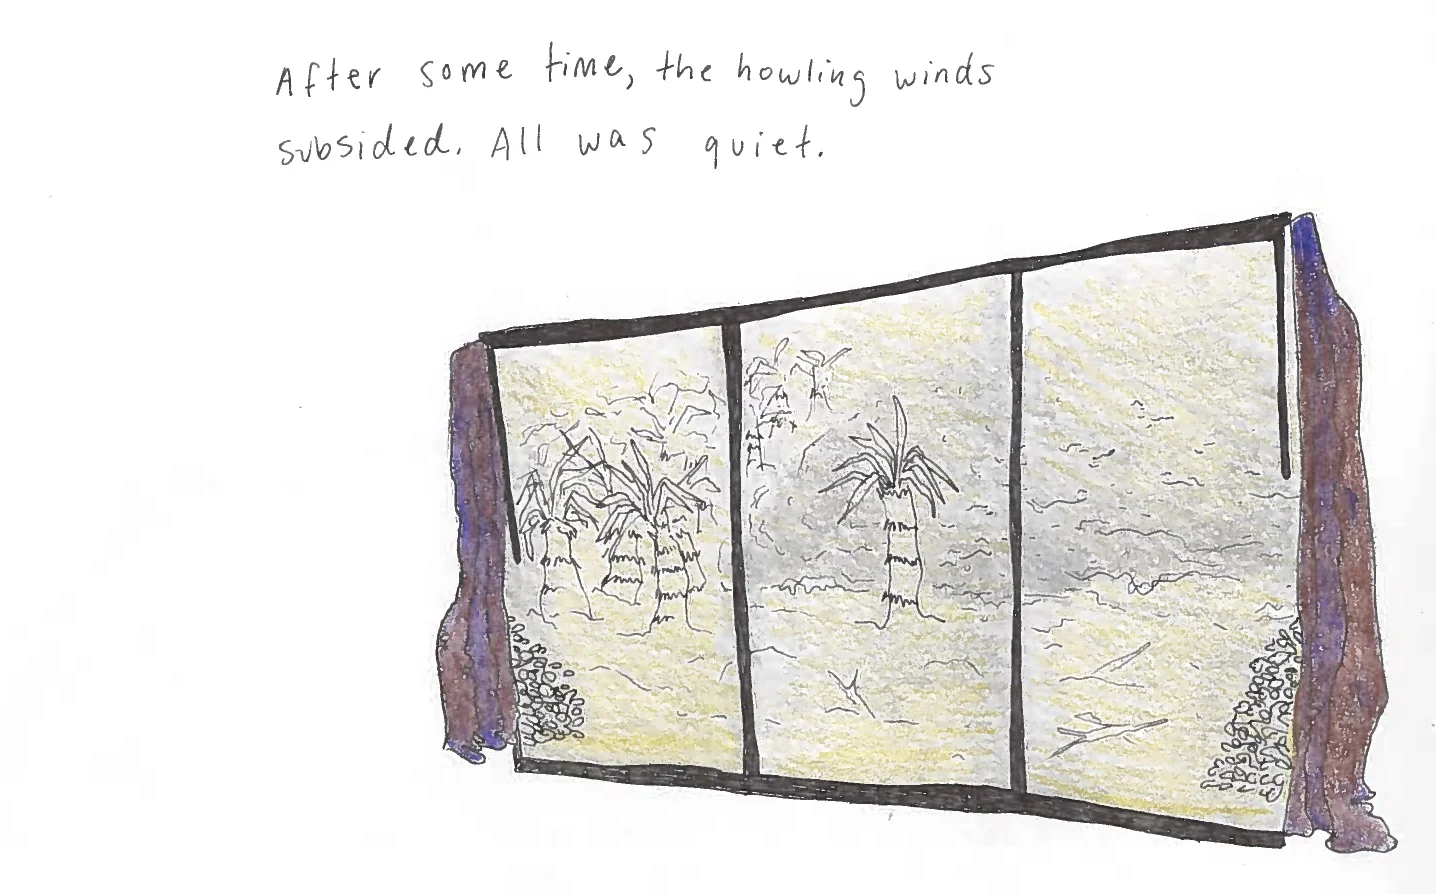 After some time, the howling winds
subsided. All was quiet.